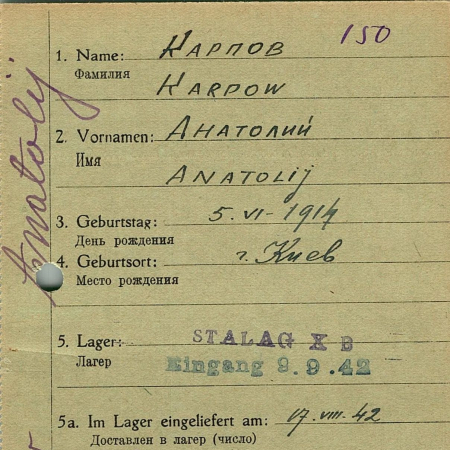 150
1. Name: Карпов
Фамилия
Karpow
2. Vornamen: Анатолий
Имя
Anatolij
3. Geburtstag: 5. VI - 1914
День рождения
4. Geburtsort: г. Киев
Место рождения
5. Lager: STALAG X B
Лагер Eingang 9.9.42
5a. Im Lager eingeliefert am: 17. VIII. 42
Доставлен в лагер (число)
Anatolij